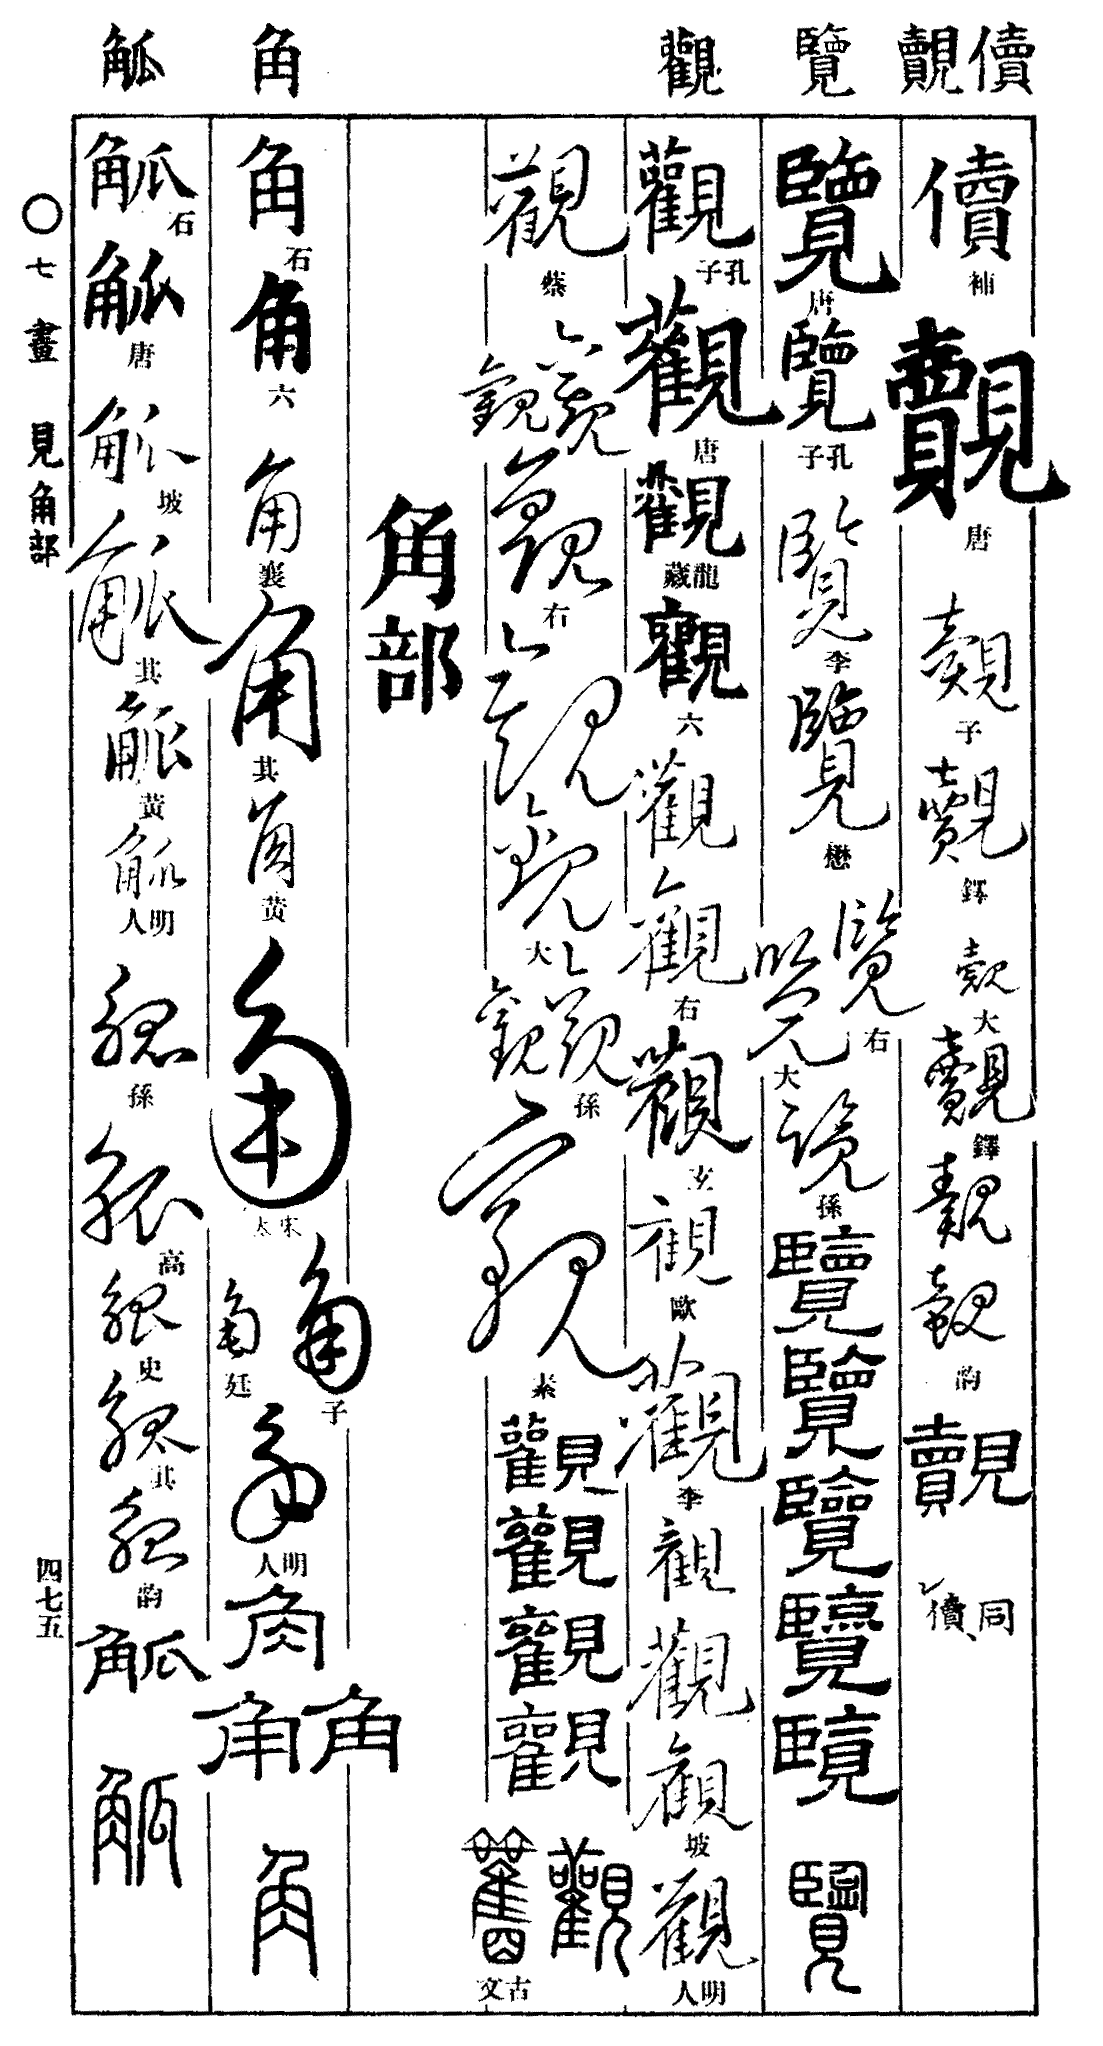 儥 覿
覽
觀
角
觚
儥
補
覿
唐
覿
子
覿
鐸
覿
大
覿
鐸
覿
覿
韵
覿
同儥
覽
唐
覽
孔子
覽
李
覽
懋
覽
右
覽
大
覽
孫
覽
覽
覽
覽
覽
覽
觀
孔子
觀
唐
觀
龍藏
觀
六
觀
觀
右
觀
玄
觀
歐
觀
李
觀
觀
觀
坡
觀
明人
觀
蔡
觀
觀
觀
右
觀
觀
大
觀
觀
孫
觀
素
觀
觀
觀
觀
觀
古文
角部
角
石
角
六
角
襄
角
其
角
黄
角
宋太
角
子
角
廷
角
明人
角
角
角
角
觚
石
觚
唐
觚
坡
觚
其
觚
黄
觚
明人
觚
孫
觚
高
觚
史
觚
其
觚
韵
觚
觚
〇七畫 見角部
四七五